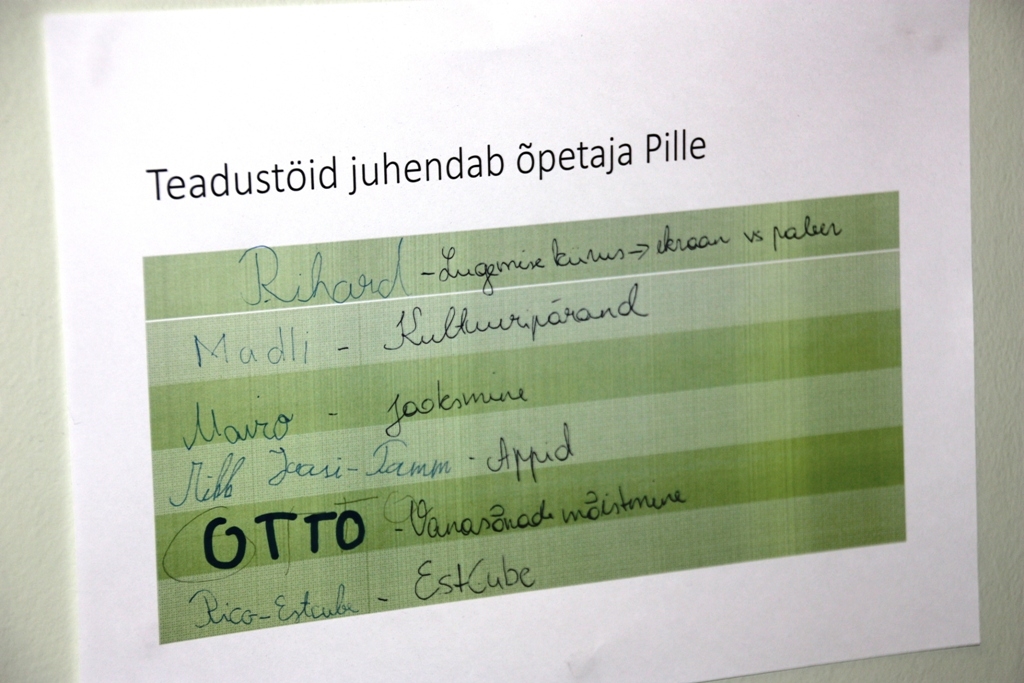 Teadustöid juhendab õpetaja Pille
Rihard - Lugemise kiirus → ekraan vs paber
Madli - Kultuuripärand
Mairo - jooksmine
Mihk Jaasi-Tamm - Äppid
OTTO - Vanasõnade mõistmine
Rico-Estcube - EstCube